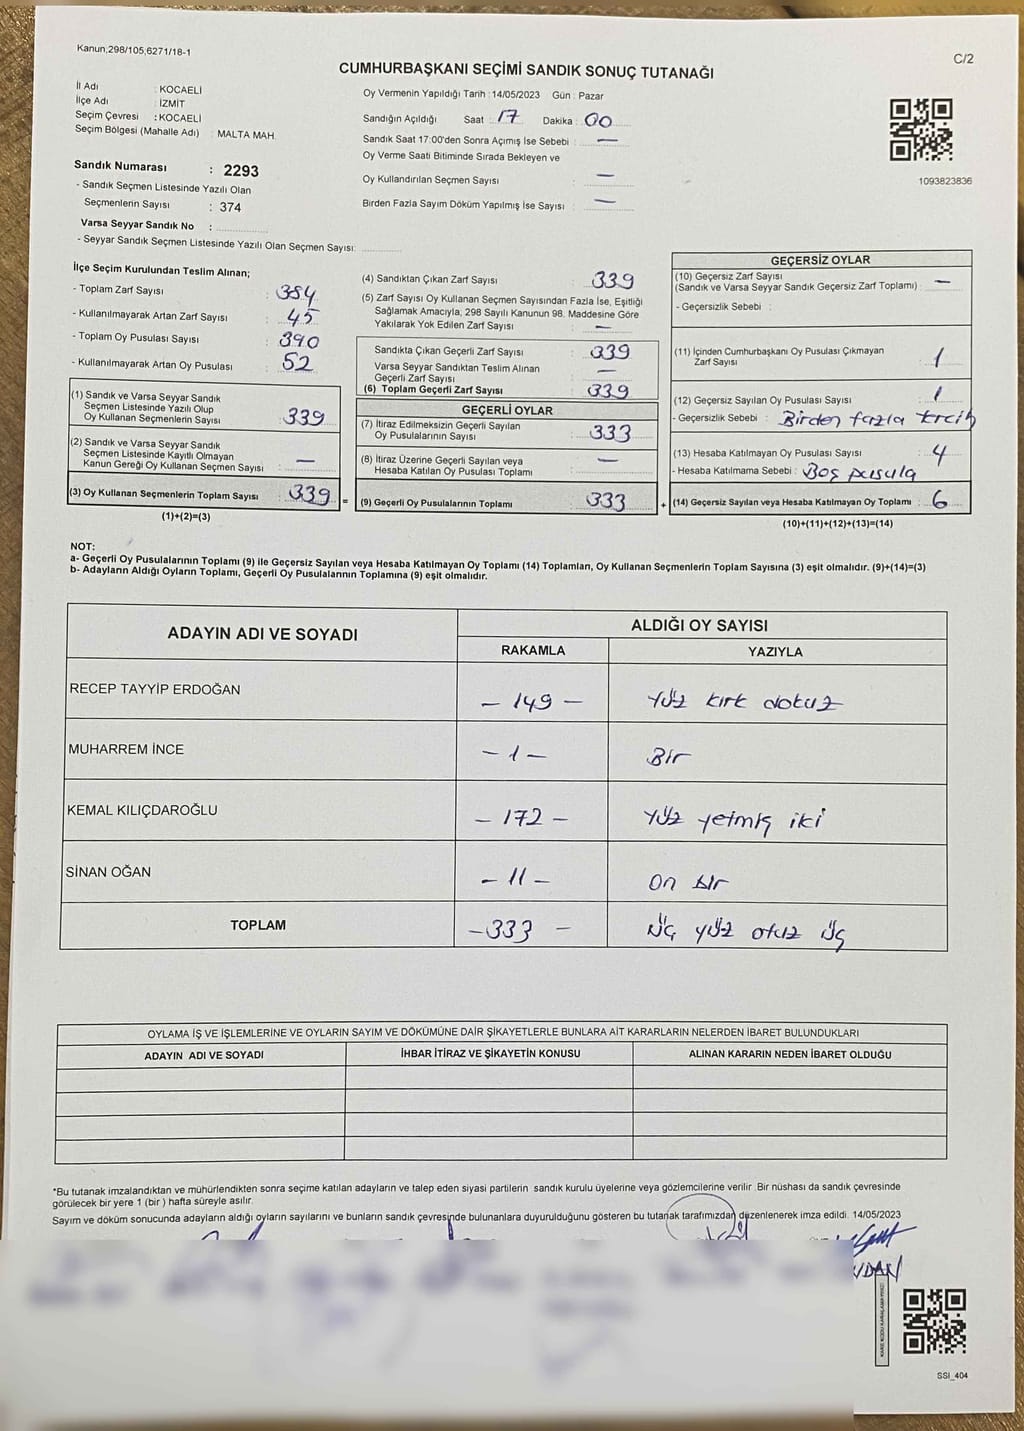 Kanun;298/105,6271/18-1
C/2
CUMHURBAŞKANI SEÇİMİ SANDIK SONUÇ TUTANAĞI
İl Adı : KOCAELİ
İlçe Adı : İZMİT
Seçim Çevresi : KOCAELİ
Seçim Bölgesi (Mahalle Adı) : MALTA MAH.
Oy Vermenin Yapıldığı Tarih : 14/05/2023 Gün : Pazar
Sandığın Açıldığı Saat : 17 Dakika : 00
Sandık Saat 17:00'den Sonra Açımış İse Sebebi : —
Oy Verme Saati Bitiminde Sırada Bekleyen ve
Oy Kullandırılan Seçmen Sayısı : —
Birden Fazla Sayım Döküm Yapılmış İse Sayısı : —
1093823836
Sandık Numarası : 2293
- Sandık Seçmen Listesinde Yazılı Olan
Seçmenlerin Sayısı : 374
Varsa Seyyar Sandık No :
- Seyyar Sandık Seçmen Listesinde Yazılı Olan Seçmen Sayısı:
İlçe Seçim Kurulundan Teslim Alınan;
- Toplam Zarf Sayısı : 384
- Kullanılmayarak Artan Zarf Sayısı : 45
- Toplam Oy Pusulası Sayısı : 390
- Kullanılmayarak Artan Oy Pusulası : 52
(1) Sandık ve Varsa Seyyar Sandık
Seçmen Listesinde Yazılı Olup
Oy Kullanan Seçmenlerin Sayısı : 339
(2) Sandık ve Varsa Seyyar Sandık
Seçmen Listesinde Kayıtlı Olmayan
Kanun Gereği Oy Kullanan Seçmen Sayısı : —
(3) Oy Kullanan Seçmenlerin Toplam Sayısı : 339 =
(1)+(2)=(3)
(4) Sandıktan Çıkan Zarf Sayısı : 339
(5) Zarf Sayısı Oy Kullanan Seçmen Sayısından Fazla İse, Eşitliği
Sağlamak Amacıyla, 298 Sayılı Kanunun 98. Maddesine Göre
Yakılarak Yok Edilen Zarf Sayısı : —
Sandıkta Çıkan Geçerli Zarf Sayısı : 339
Varsa Seyyar Sandıktan Teslim Alınan
Geçerli Zarf Sayısı : —
(6) Toplam Geçerli Zarf Sayısı : 339
GEÇERLİ OYLAR
(7) İtiraz Edilmeksizin Geçerli Sayılan
Oy Pusulalarının Sayısı : 333
(8) İtiraz Üzerine Geçerli Sayılan veya
Hesaba Katılan Oy Pusulası Toplamı : —
(9) Geçerli Oy Pusulalarının Toplamı : 333 +
GEÇERSİZ OYLAR
(10) Geçersiz Zarf Sayısı
(Sandık ve Varsa Seyyar Sandık Geçersiz Zarf Toplamı) : —
- Geçersizlik Sebebi :
(11) İçinden Cumhurbaşkanı Oy Pusulası Çıkmayan
Zarf Sayısı : 1
(12) Geçersiz Sayılan Oy Pusulası Sayısı : 1
- Geçersizlik Sebebi : Birden fazla tercih
(13) Hesaba Katılmayan Oy Pusulası Sayısı : 4
- Hesaba Katılmama Sebebi : Boş pusula
(14) Geçersiz Sayılan veya Hesaba Katılmayan Oy Toplamı : 6
(10)+(11)+(12)+(13)=(14)
NOT:
a- Geçerli Oy Pusulalarının Toplamı (9) ile Geçersiz Sayılan veya Hesaba Katılmayan Oy Toplamı (14) Toplamları, Oy Kullanan Seçmenlerin Toplam Sayısına (3) eşit olmalıdır. (9)+(14)=(3)
b- Adayların Aldığı Oyların Toplamı, Geçerli Oy Pusulalarının Toplamına (9) eşit olmalıdır.
ADAYIN ADI VE SOYADI
ALDIĞI OY SAYISI
RAKAMLA YAZIYLA
RECEP TAYYİP ERDOĞAN – 149 – Yüz kırk dokuz
MUHARREM İNCE – 1 – Bir
KEMAL KILIÇDAROĞLU – 172 – Yüz yetmiş iki
SİNAN OĞAN – 11 – On bir
TOPLAM – 333 – Üç yüz otuz üç
OYLAMA İŞ VE İŞLEMLERİNE VE OYLARIN SAYIM VE DÖKÜMÜNE DAİR ŞİKAYETLERLE BUNLARA AİT KARARLARIN NELERDEN İBARET BULUNDUKLARI
ADAYIN ADI VE SOYADI İHBAR İTİRAZ VE ŞİKAYETİN KONUSU ALINAN KARARIN NEDEN İBARET OLDUĞU
*Bu tutanak imzalandıktan ve mühürlendikten sonra seçime katılan adayların ve talep eden siyasi partilerin sandık kurulu üyelerine veya gözlemcilerine verilir. Bir nüshası da sandık çevresinde
görülecek bir yere 1 (bir) hafta süreyle asılır.
Sayım ve döküm sonucunda adayların aldığı oyların sayılarını ve bunların sandık çevresinde bulunanlara duyurulduğunu gösteren bu tutanak tarafımızdan düzenlenerek imza edildi. 14/05/2023
SSI_404